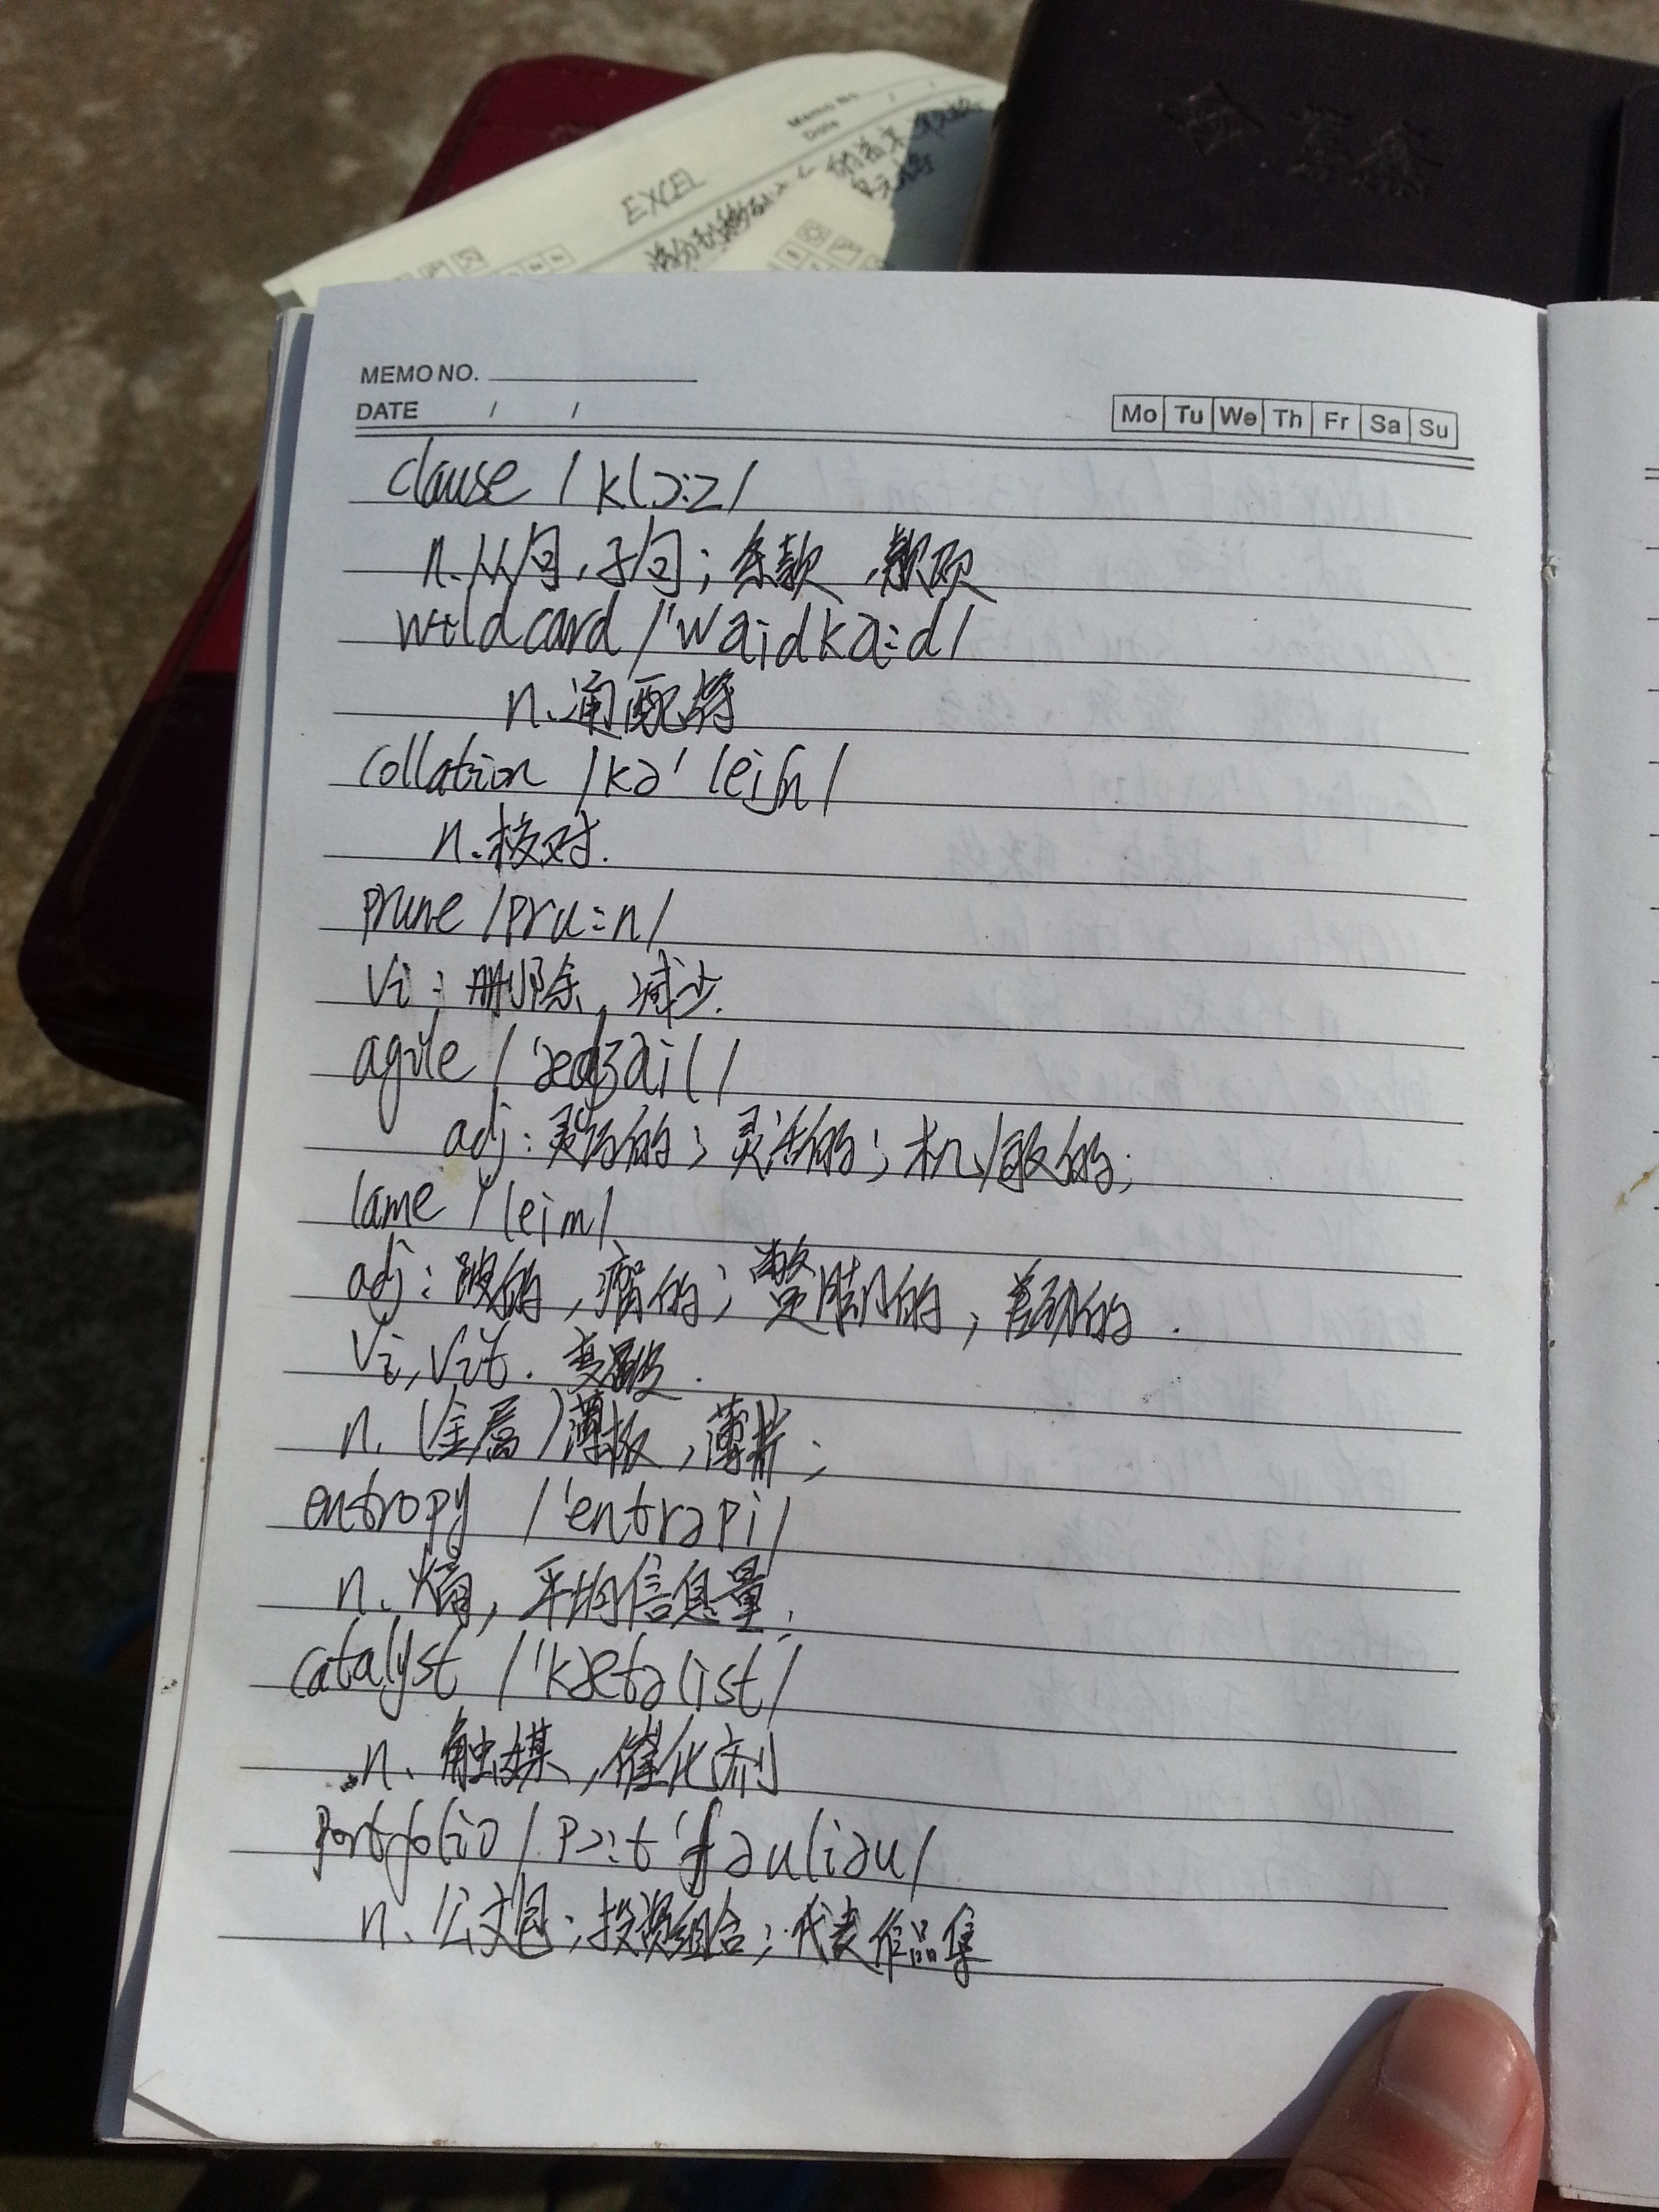 Memo No.
Date / /
EXCEL
MEMO NO.
DATE / /
Mo Tu We Th Fr Sa Su
clause /klɔ:z/
n.从句,子句;条款,款项
wildcard /'waidka:d/
n.通配符
collation /kə'leiʃn/
n.核对.
prune /pru:n/
vi:删除,减少.
agile /'ædʒail/
adj:灵巧的;灵活的;机敏的;
lame /leim/
adj:跛的,瘸的;蹩脚的,差劲的.
vi,vt.变跛.
n.(金属)薄板,薄片;
entropy /'entrəpi/
n.熵,平均信息量;
catalyst /'kætəlist/
n.触媒,催化剂
portfolio /pɔ:t'fəuliəu/
n.公文包;投资组合;代表作品集